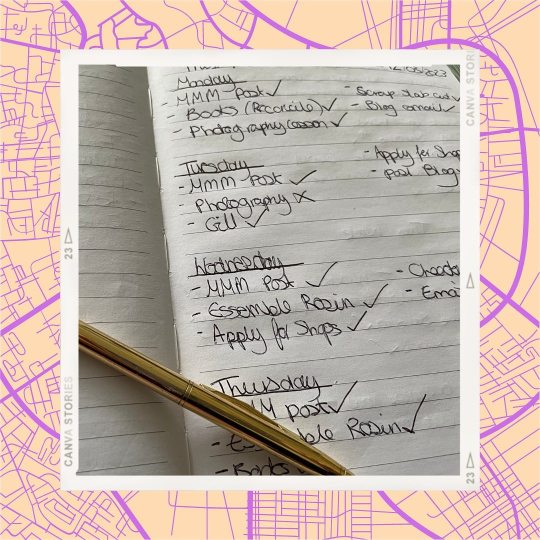 12/06/2023
Monday
- MMM Post ✓
- Books (Reconcile) ✓
- Photography lesson ✓
- Scrap
- Blog email ✓
Tuesday
- MMM Post ✓
Photography X
- Gill ✓
- Apply for Shop
- post Blog
Wednesday
- MMM Post ✓
- Essemble Rosin ✓
- Apply for Shops ✓
- Check
- Emai
Thursday
M Post ✓
- Ess ble Rosin ✓
- Books ✓
CANVA STORIES
23 ▷
CANVA STORIES
23